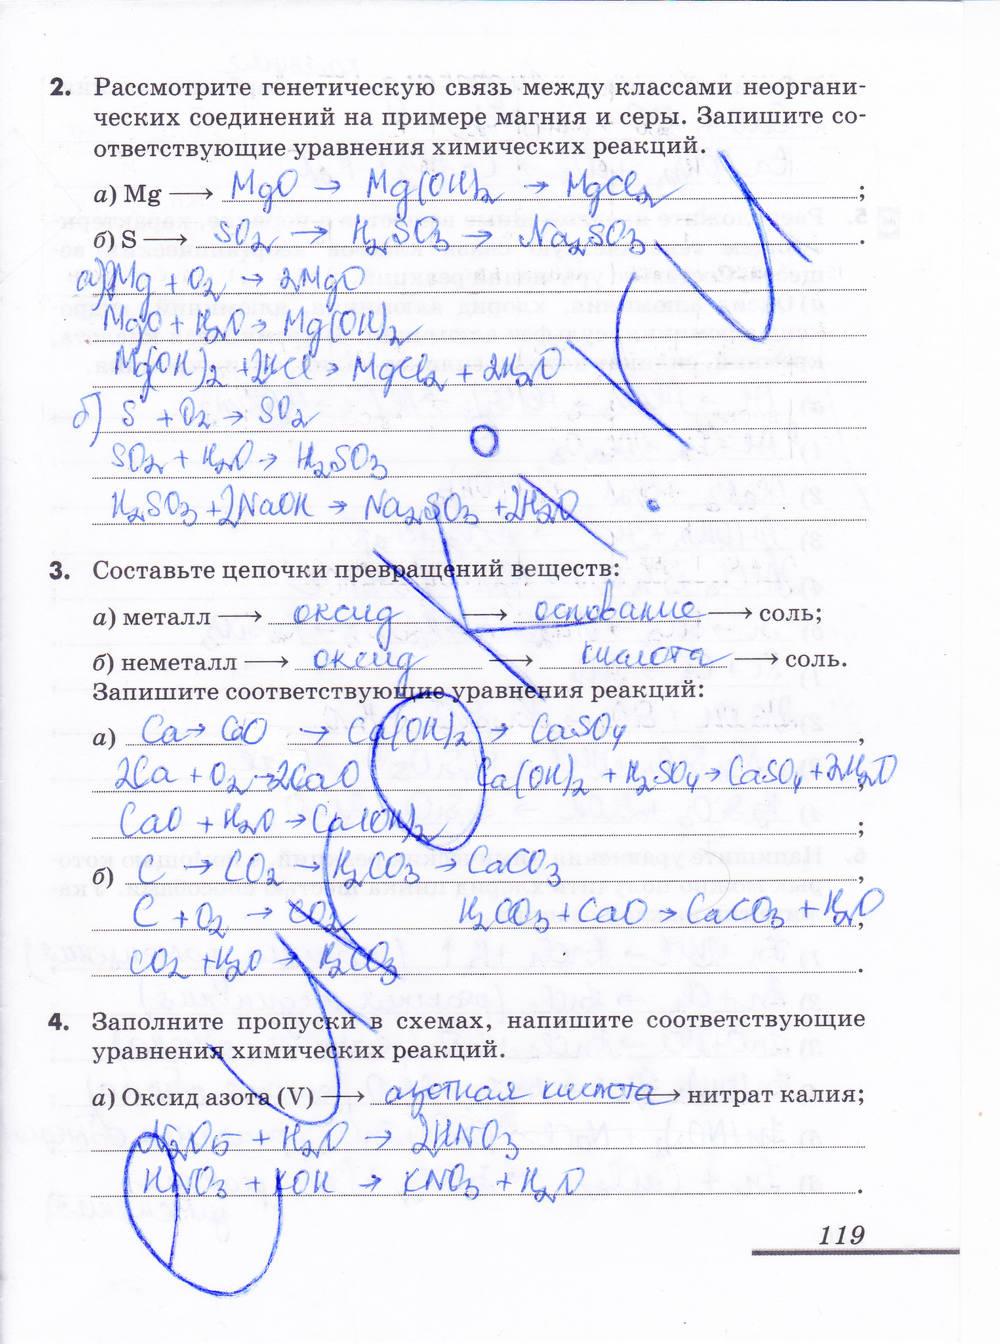 2. Рассмотрите генетическую связь между классами неоргани-
ческих соединений на примере магния и серы. Запишите со-
ответствующие уравнения химических реакций.
а) Mg → MgO → Mg(OH)2 → MgCl2 ;
б) S → SO2 → H2SO3 → Na2SO3 .
а) Mg + O2 → 2MgO
MgO + H2O → Mg(OH)2
Mg(OH)2 + 2HCl → MgCl2 + 2H2O
б) S + O2 → SO2
SO2 + H2O → H2SO3
H2SO3 + 2NaOH → Na2SO3 + 2H2O
3. Составьте цепочки превращений веществ:
а) металл → оксид → основание → соль;
б) неметалл → оксид → кислота → соль.
Запишите соответствующие уравнения реакций:
а) Ca → CaO → Ca(OH)2 → CaSO4 ,
2Ca + O2 → 2CaO Ca(OH)2 + H2SO4 → CaSO4 + 2H2O ,
CaO + H2O → Ca(OH)2 ;
б) C → CO2 → H2CO3 → CaCO3 ,
C + O2 → CO2 H2CO3 + CaO → CaCO3 + H2O ,
CO2 + H2O → H2CO3 .
4. Заполните пропуски в схемах, напишите соответствующие
уравнения химических реакций.
а) Оксид азота (V) → азотная кислота → нитрат калия;
N2O5 + H2O → 2HNO3
HNO3 + KOH → KNO3 + H2O .
119